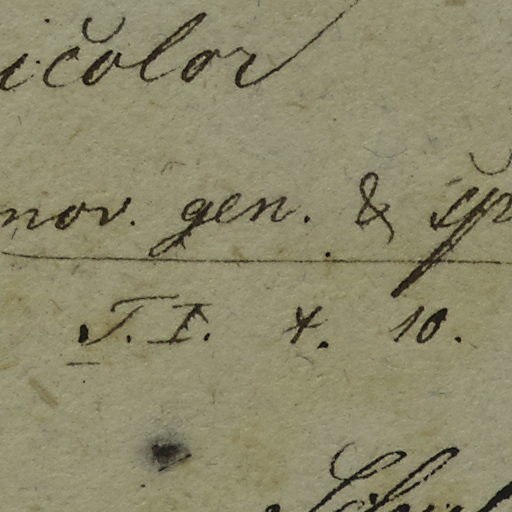 icolor
nov. gen. & sp
T. I. 4. 10.